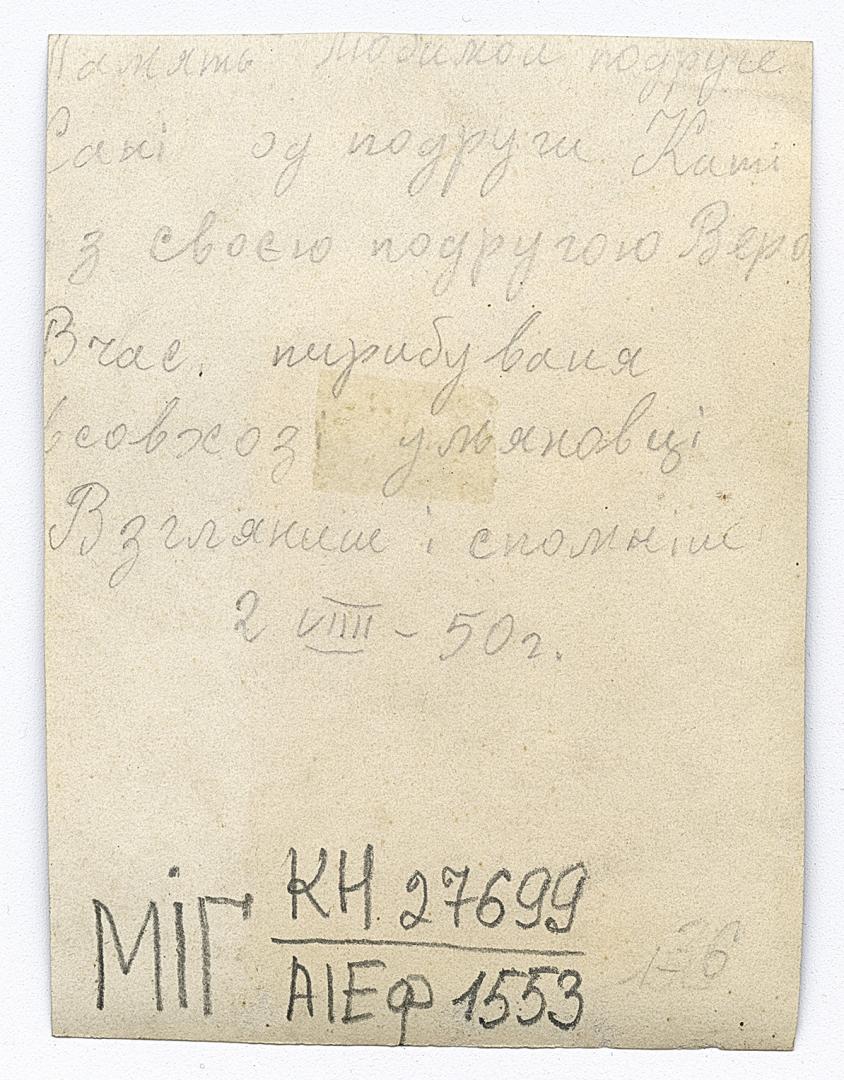 Память любимой подруге
Сані од подруги Каті
з своєю подругою Вера
Вчас. пирибуваня
всовхоз ульяновці
Взгляниш і спомніш
2 VIIII - 50г.
МІГ КН 27699
АІЕФ 1553